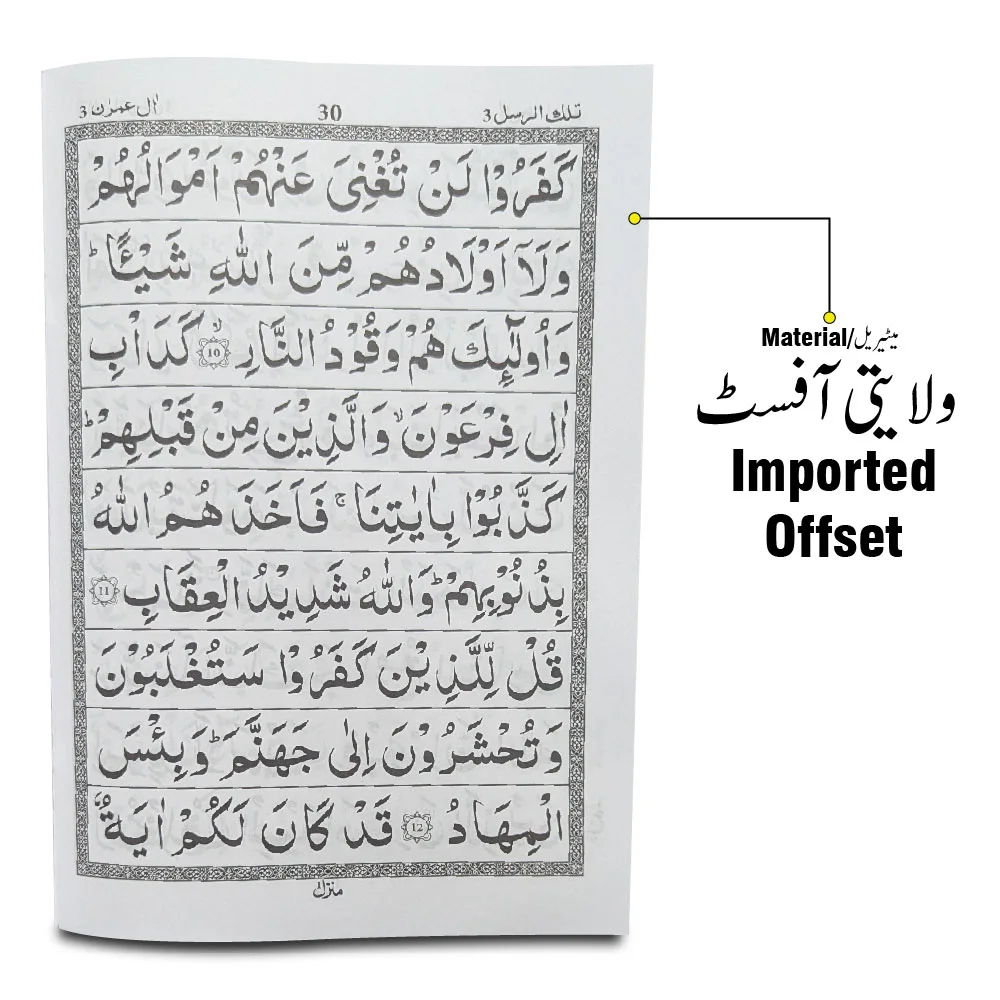 تلك الرسل 3
30
اٰل عمرٰن 3
كَفَرُوْا لَنْ تُغْنِیَ عَنْهُمْ اَمْوَالُهُمْ
وَلَاۤ اَوْلَادُهُمْ مِّنَ اللّٰهِ شَیْـًٔا ؕ
وَاُولٰٓئِكَ هُمْ وَقُوْدُ النَّارِ ۙ 10 كَدَاْبِ
اٰلِ فِرْعَوْنَ ۙ وَالَّذِیْنَ مِنْ قَبْلِهِمْ ؕ
كَذَّبُوْا بِاٰیٰتِنَا ۚ فَاَخَذَهُمُ اللّٰهُ
بِذُنُوْبِهِمْ ؕ وَاللّٰهُ شَدِیْدُ الْعِقَابِ 11
قُلْ لِّلَّذِیْنَ كَفَرُوْا سَتُغْلَبُوْنَ
وَتُحْشَرُوْنَ اِلٰی جَهَنَّمَ ؕ وَبِئْسَ
الْمِهَادُ 12 قَدْ كَانَ لَكُمْ اٰیَةٌ
منزل
Material/میٹیریل
ولایتی آفسٹ
Imported
Offset